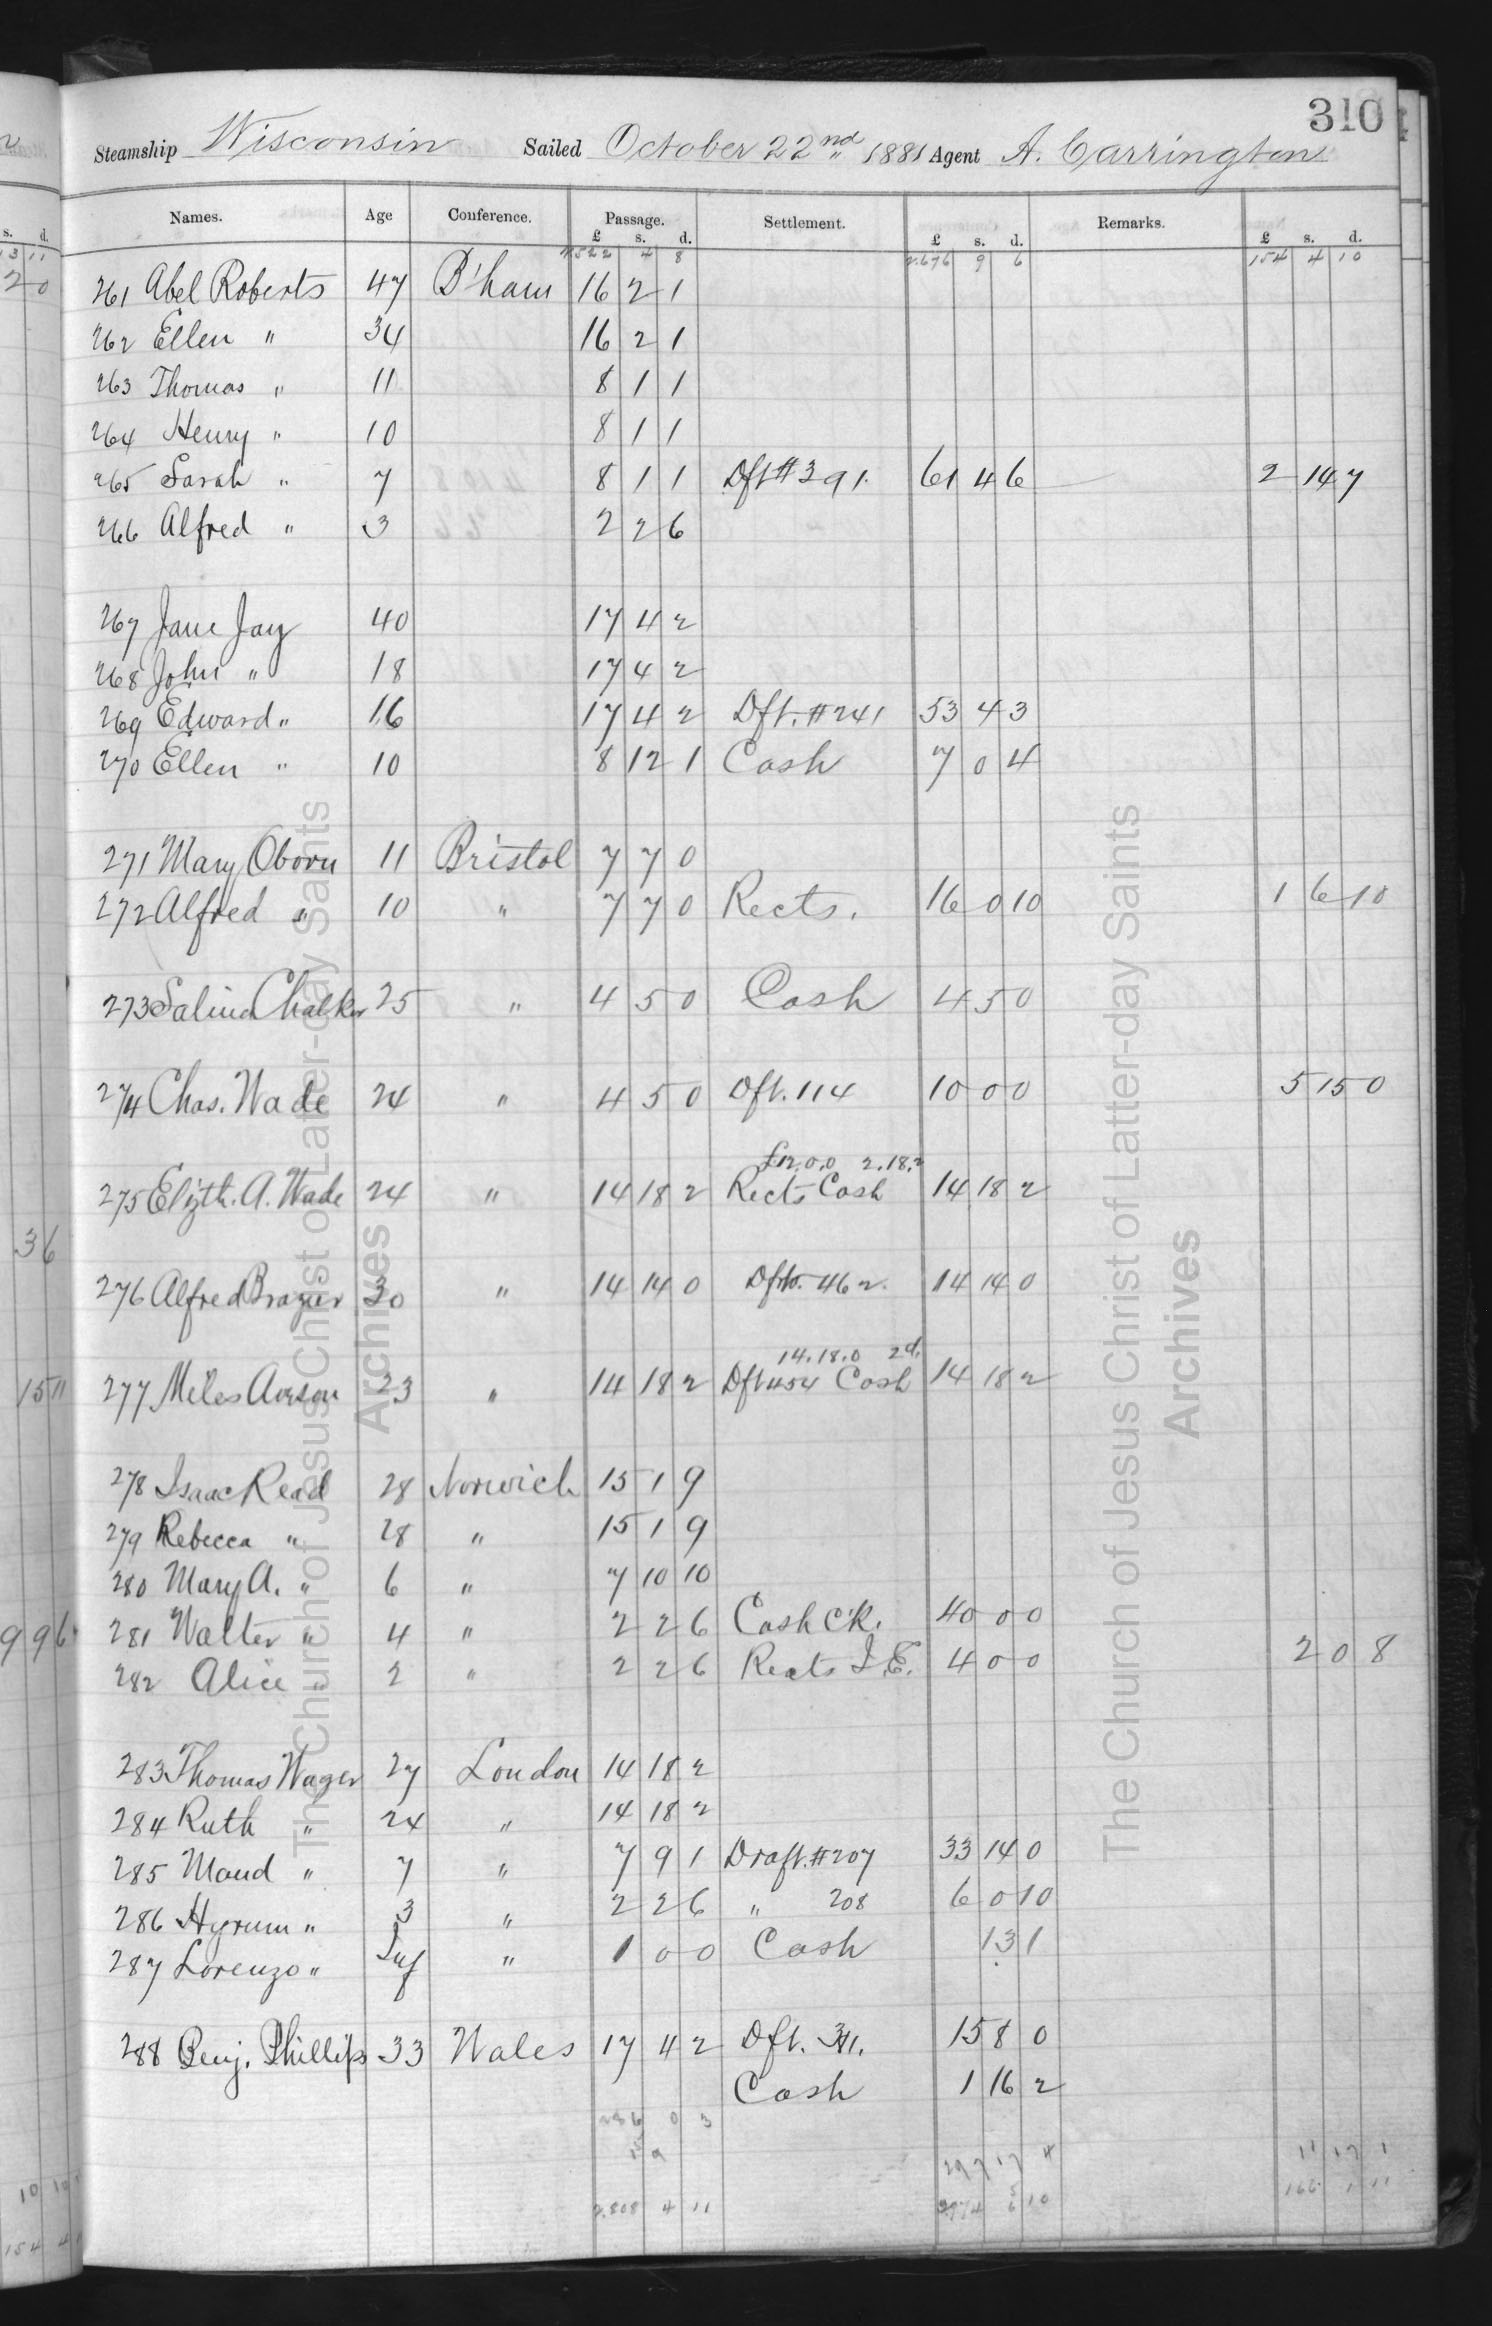 310
Steamship Wisconsin Sailed October 22nd 1881 Agent A. Carrington
Names. Age Conference. Passage. Settlement. Remarks.
s. d. £ s. d. £ s. d. £ s. d.
13 11 2.522 4 8 2.676 9 6 154 4 10
2 0 261 Abel Roberts 47 B'ham 16 2 1
262 Ellen " 34 16 2 1
263 Thomas " 11 8 1 1
264 Henry " 10 8 1 1
265 Sarah " 7 8 1 1 Dft #391. 61 4 6 2 14 7
266 Alfred " 3 2 2 6
267 Jane Jay 40 17 4 2
268 John " 18 17 4 2
269 Edward " 16 17 4 2 Dft. #241 53 4 3
270 Ellen " 10 8 12 1 Cash 7 0 4
271 Mary Oborn 11 Bristol 7 7 0
272 Alfred " 10 " 7 7 0 Rects. 16 0 10 1 6 10
273 Salina Chalker 25 " 4 5 0 Cash 4 5 0
274 Chas. Wade 24 " 4 5 0 Dft. 114 10 0 0 5 15 0
£12.0.0 2.18.2
275 Elizth. A. Wade 24 " 14 18 2 Rects Cash 14 18 2
3 6
276 Alfred Brazier 30 " 14 14 0 Dft. 462. 14 14 0
14.18.0 2d.
15 11 277 Miles 23 " 14 18 2 Dft #454 Cash 14 18 2
278 Isaac Read 28 Norwich 15 1 9
279 Rebecca " 28 " 15 1 9
280 Mary A. " 6 " 7 10 10
9 9 6 281 Walter " 4 " 2 2 6 Cash C'k. 40 0 0
282 Alice " 2 " 2 2 6 Rects I.E. 4 0 0 2 0 8
283 Thomas Wager 27 London 14 18 2
284 Ruth " 24 " 14 18 2
285 Maud " 7 " 7 9 1 Draft. #207 33 14 0
286 Hyrum " 3 " 2 2 6 " 208 6 0 10
287 Lorenzo " Inf " 1 0 0 Cash 13 1
288 Benj. Phillips 33 Wales 17 4 2 Dft. 15 8 0
Cash 1 16 2
286 0 3
297 17 4 11 17 1
10 10 2.808 4 11 6 10 166 1 11
154 4
The Church of Jesus Christ of Latter-day Saints
Archives
The Church of Jesus Christ of Latter-day Saints
Archives